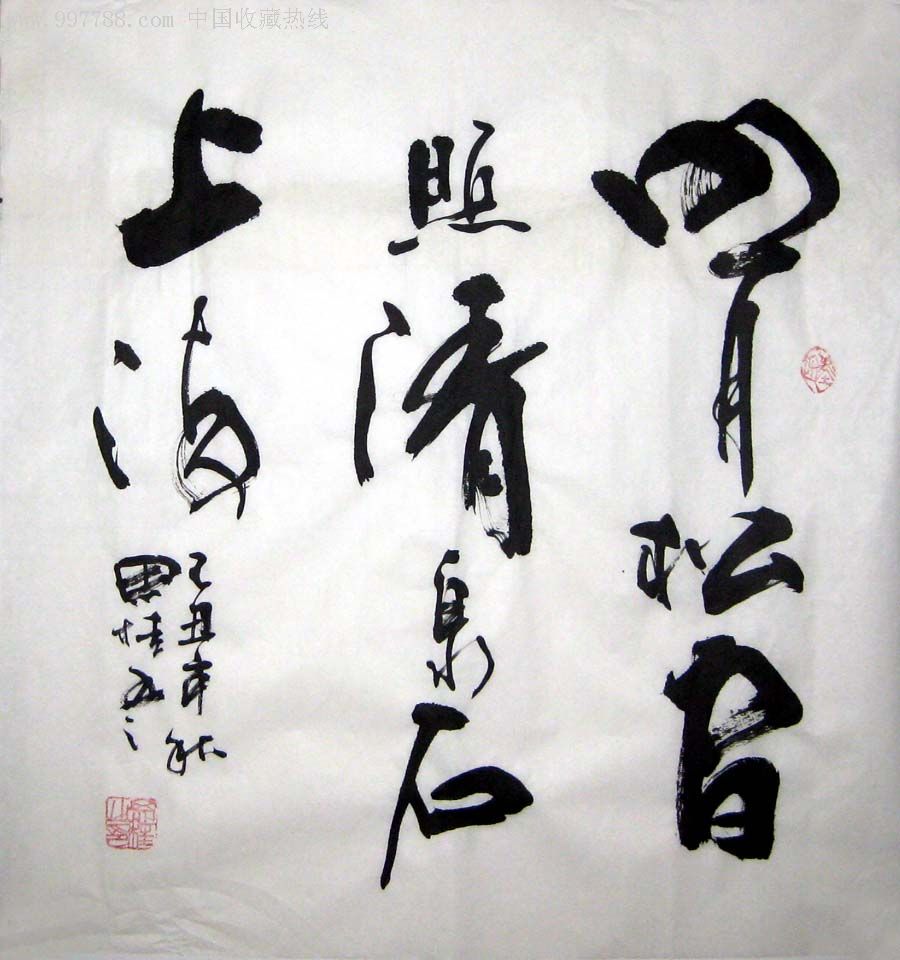 www.997788.com 中国收藏热线
明月松间
照清泉石
上流
己丑年秋